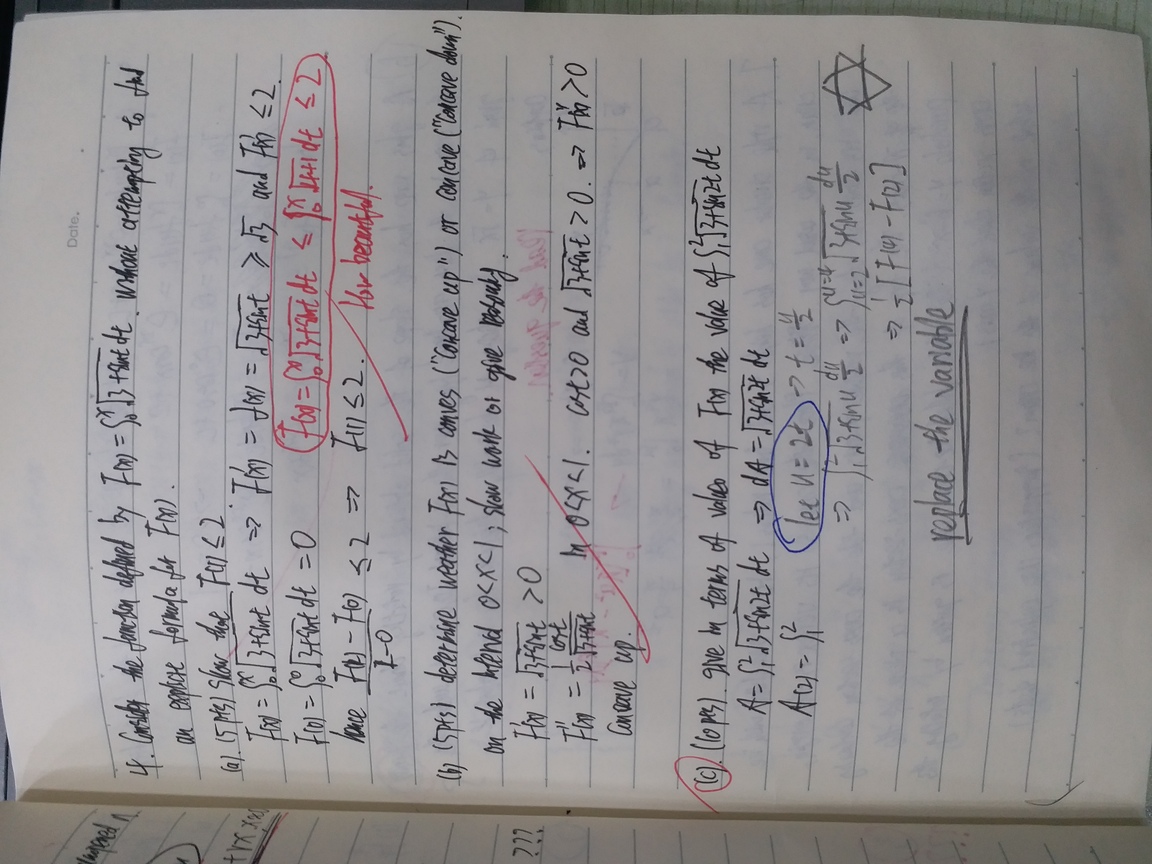 Date.
4. Consider the function defined by F(x) = ∫₀ˣ √3+sint dt. without attempting to find
an explicit formula for F(x).
(a). (5pts) show that F(1) ≤ 2.
F(x) = ∫₀ˣ √3+sint dt ⇒ F'(x) = f(x) = √3+sint ≥ √3 and F'(x) ≤ 2.
F(0) = ∫₀⁰ √3+sint dt = 0
F(x) = ∫₀ˣ √3+sint dt ≤ ∫₀ˣ dt ≤ 2
hence F(1) - F(0) / 1-0 ≤ 2 ⇒ F(1) ≤ 2.
How beautiful.
(b) (5pts) determine weather F(x) is convex ("concave up") or concave ("concave down").
on the interval 0<x<1; show work or give reasoning.
F'(x) = √3+sint > 0
F''(x) = 1/2 cost/√3+sint In 0<x<1. cost>0 and √3+sint > 0. ⇒ F''(x) > 0
Concave up.
(c). (10pts). give in terms of values of F(x) the value of ∫₁² √3+sin2t dt
A = ∫₁² √3+sin2t dt ⇒ dA = √3+sin2t dt
A(2) = ∫₁² let u = 2t → t = u/2
⇒ ∫₁² √3+sinu du/2 ⇒ ∫u=2 u=4 √3+sinu du/2
⇒ 1/2 [F(4) - F(2)]
replace the variable
+rx
???